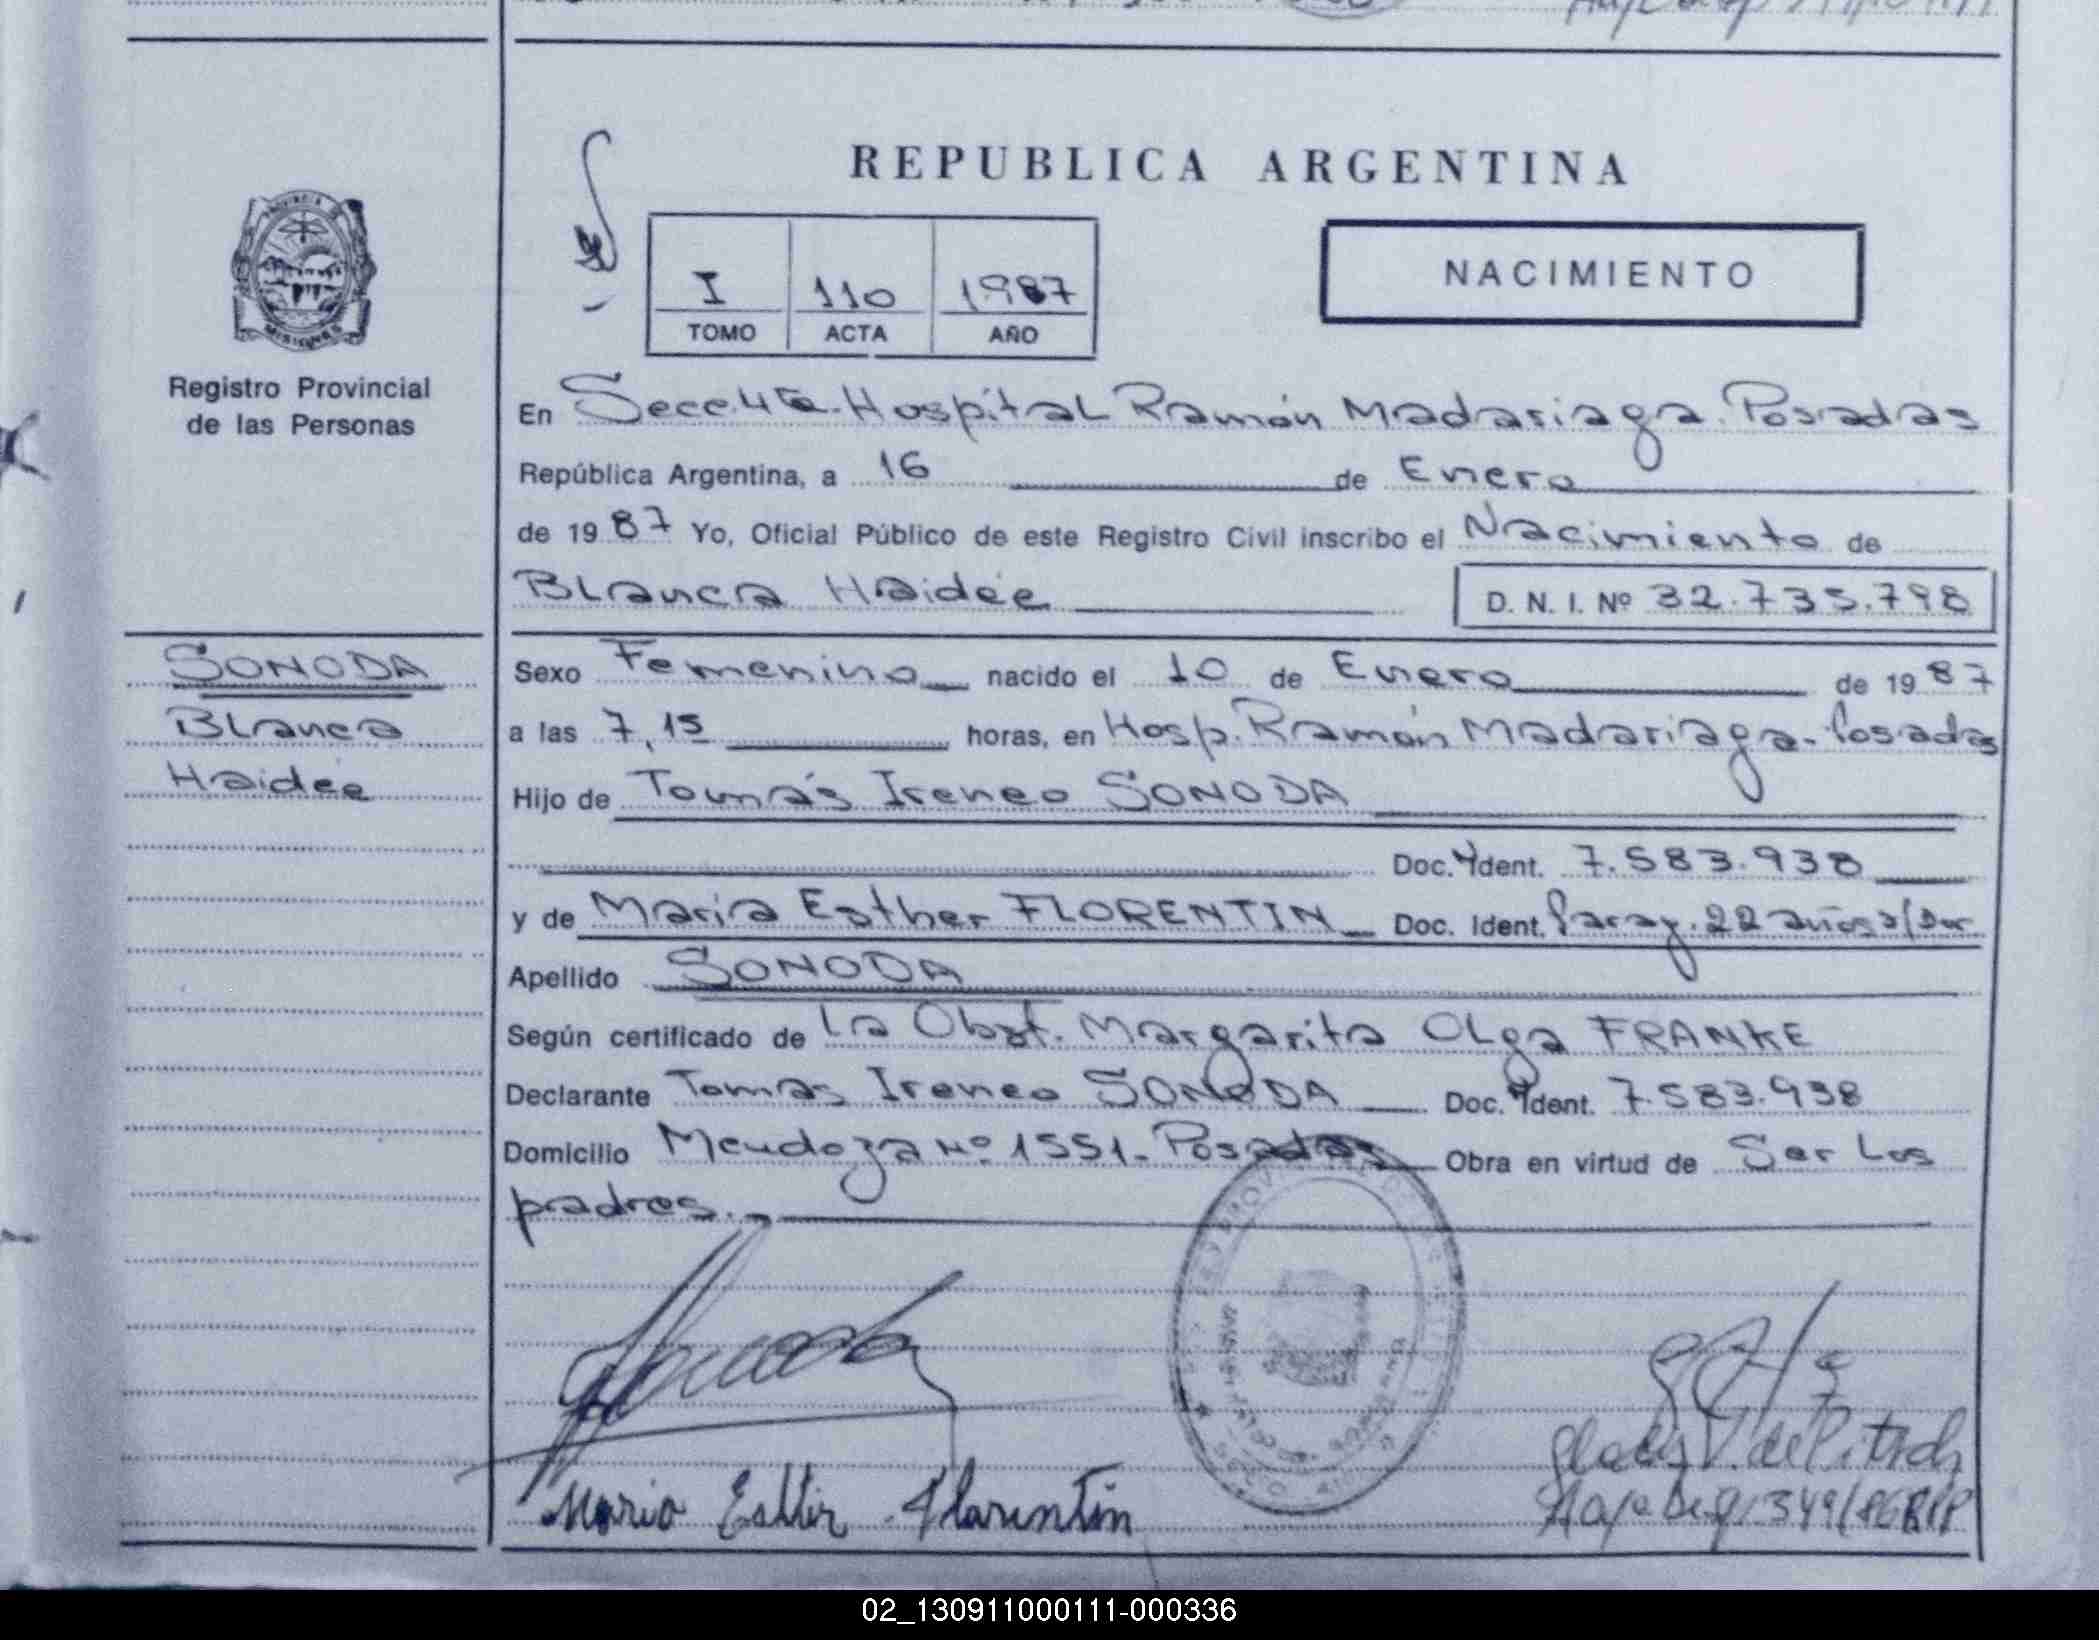 REPUBLICA ARGENTINA
PROVINCIA DE
MISIONES
Registro Provincial
de las Personas
I 110 1987
TOMO ACTA AÑO
NACIMIENTO
En Secc. 4ta. Hospital Ramón Madariaga. Posadas
República Argentina, a 16 de Enero
de 1987 Yo, Oficial Público de este Registro Civil inscribo el Nacimiento de
Blanca Haidée D. N. I. Nº 32.735.798
SONODA
Blanca
Haidée
Sexo Femenino nacido el 10 de Enero de 1987
a las 7,15 horas, en Hosp. Ramón Madariaga- Posadas
Hijo de Tomás Ireneo SONODA
Doc. Ident. 7.583.938
y de María Esther FLORENTIN Doc. Ident. Parag. 22 años
Apellido SONODA
Según certificado de la Obst. Margarita Olga FRANKE
Declarante Tomas Ireneo SONODA Doc. Ident. 7.583.938
Domicilio Mendoza Nº 1551- Posadas Obra en virtud de Ser Los
padres.
Maria Esther Florentin
02_130911000111-000336